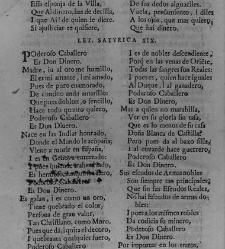 Essa esposa de la Villa,
Que Al dinero, san de cecilla,
I que Ai! de quien le dizen,
Si ajusticiar te quisiere,
De sus dedos alguaziles.
A los ojos, que mas quiero,
LET. SATYRICA XIX.
Poderoso Caballero
Es Don Dinero.
Madre, iu al oro me humillo,
El es mi amante, i mi amado,
Pues de puro enamorado,
De contino anda amarillo
Que pues doblon, o sencillo,
Haze todo quanto quiero,
Poderoso Caballero
Es Don Dinero.
Nace en las Indias honrado,
Donde el Mundo le acompaña,
Viene a morir en España,
I es en Genova enterrado:
Poderoso Caballero
Es Don Dinero.
Es galan, i es como un oro,
Tiene quebrado el color,
Persona de gran valor,
Tan Christiano, como Moro.
Pues que da, i quita el decoro,
I quebranta qualquier fuero,
Poderoso Caballero
Es Don Dinero.
I es de nobles descendiente,
Porq en las venas de Oriete,
Todas las sangres son Reales:
I pues es, quien haze iguales
Al Duque, i al ganadero,
Poderoso Caballero
Es Don Dinero.
Mas a quien no maravilla,
Ver en su gloria sin tassa,
Que es lo menos de su casa
Doña Blanca de Castilla?
Pero pues da al baxo silla,
I al cobarde haze guerrero,
Poderoso Caballero
Es Don Dinero.
Sus escudos de Armas nobles
Son siempre tan principales,
Que sin sus Escudos Reales,
No hai Escudos de armas dobles:
I pues a los mismos robles
Da codicia su minero,
Poderoso Caballero
Es Don Dinero.
Por importar en los tratos,